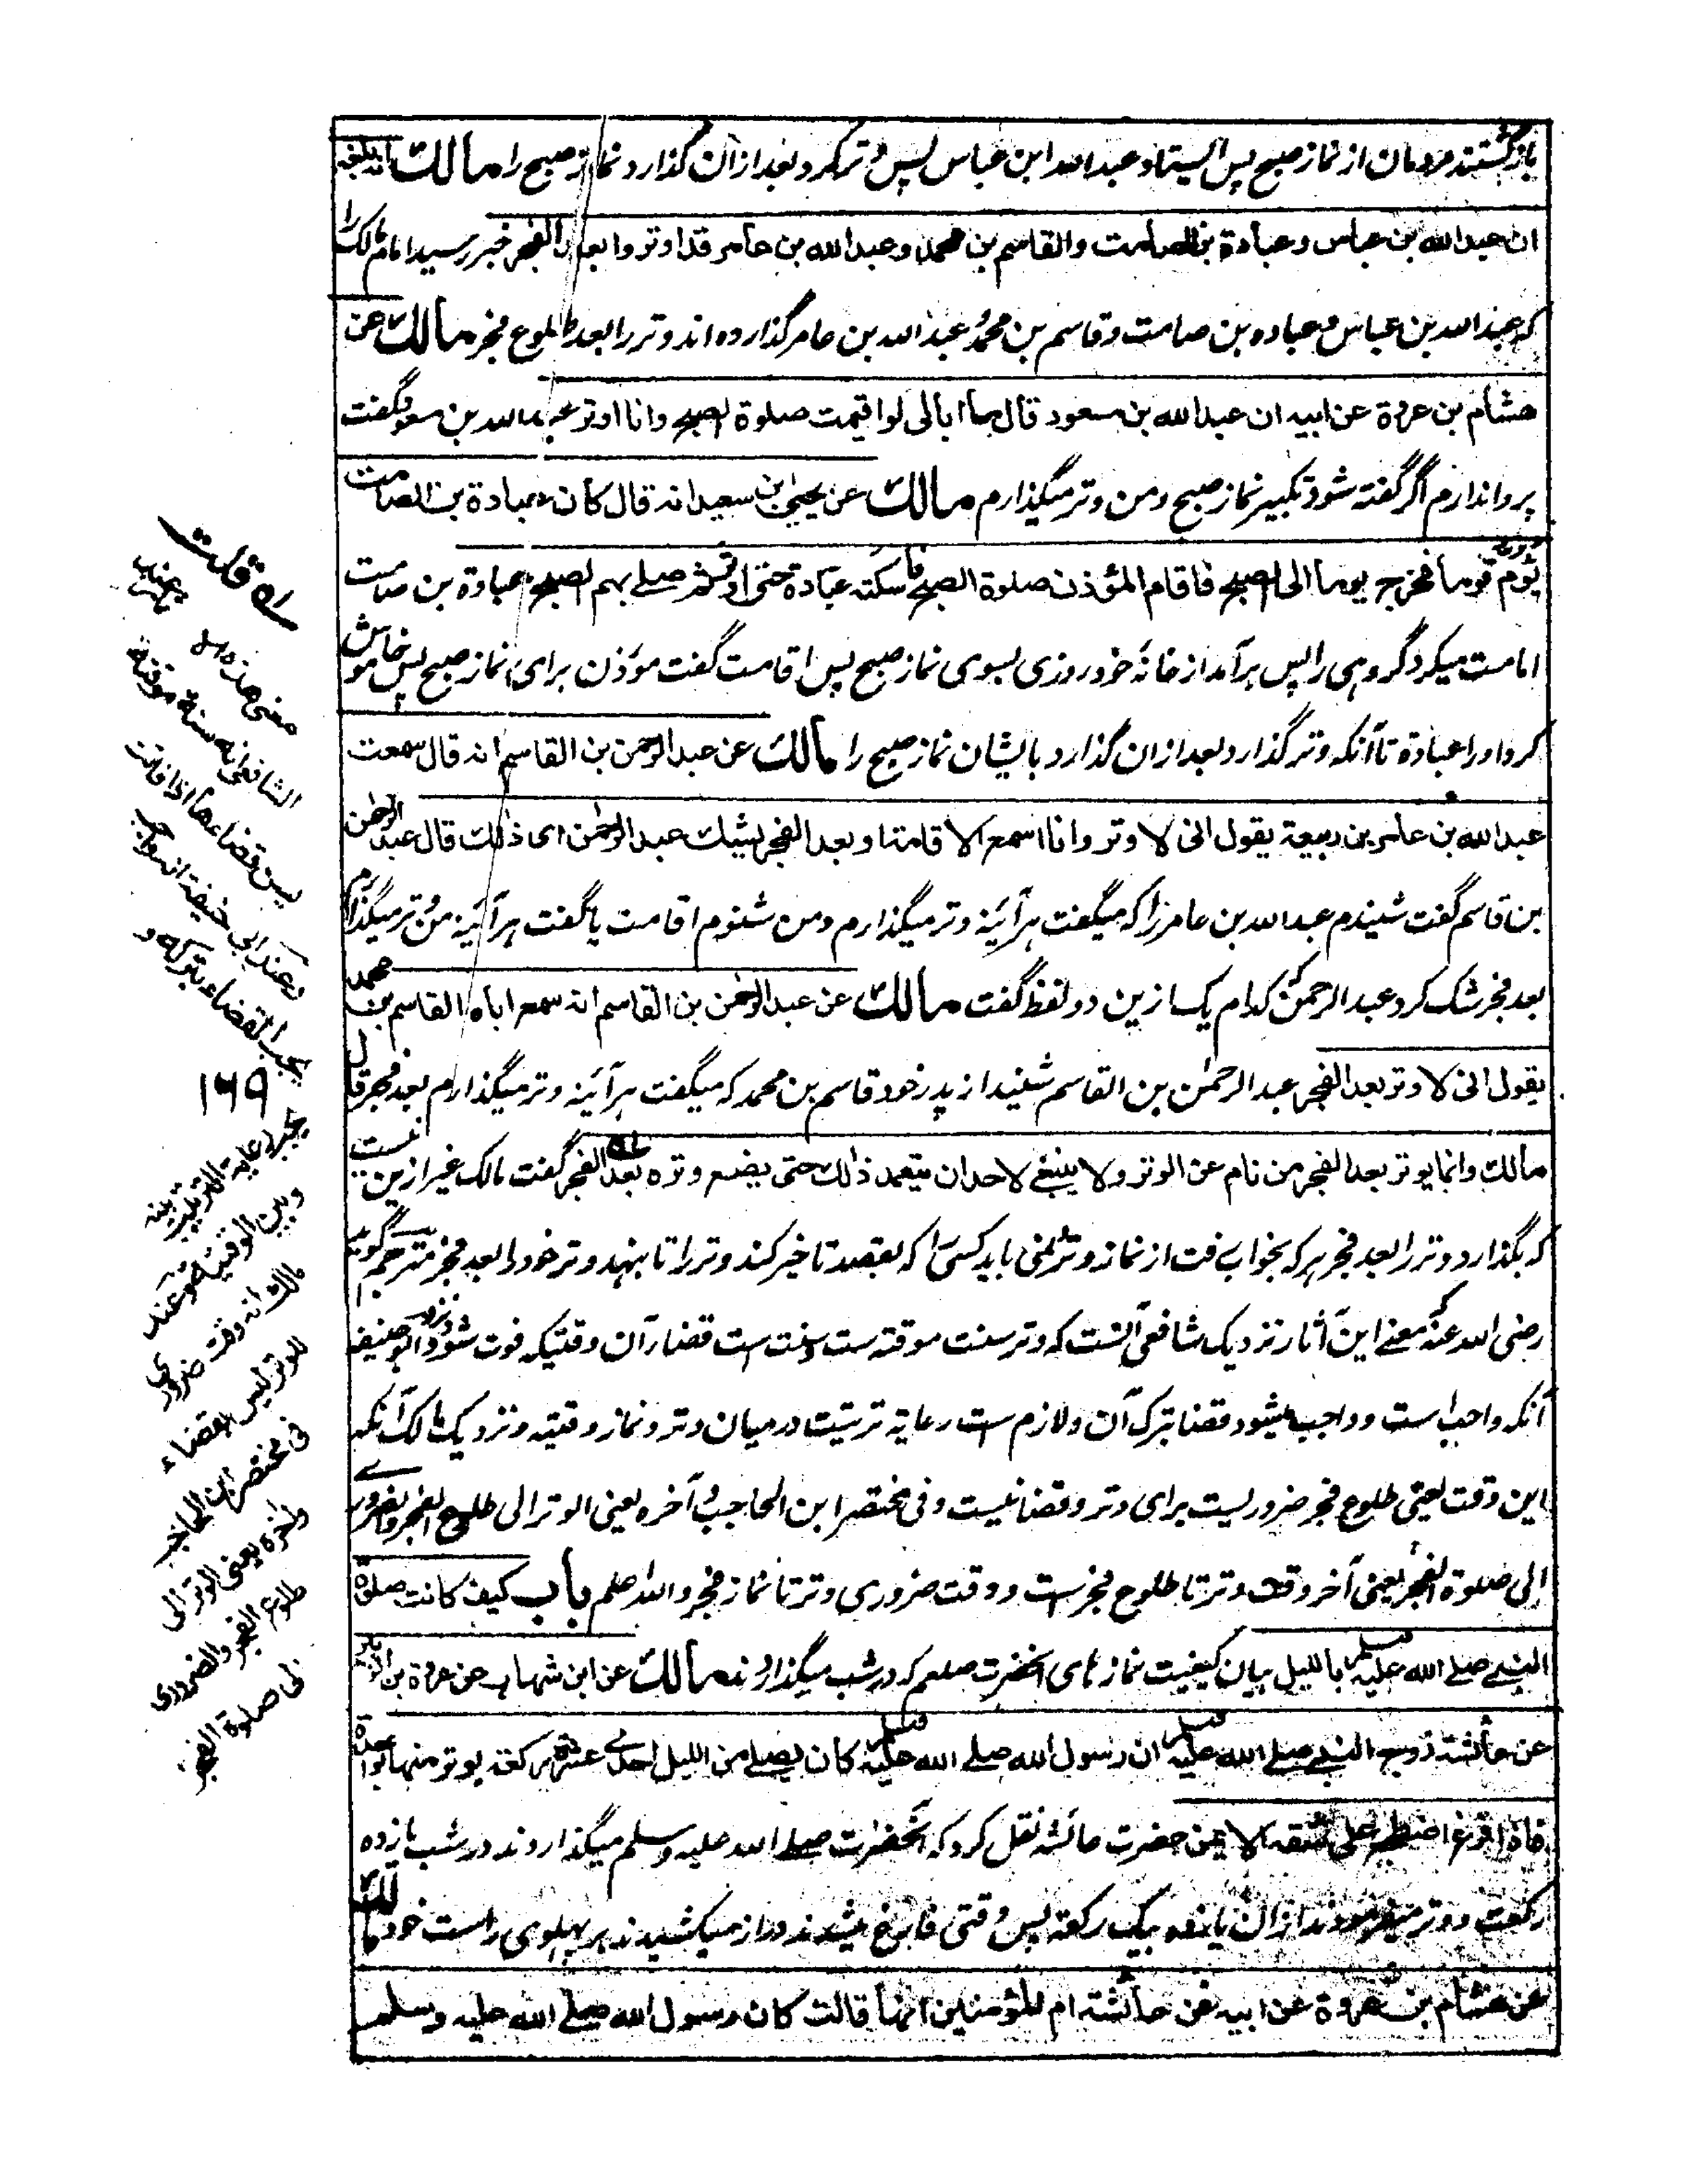 بازگشتند مردمان از نماز صبح پس ایستاد عبد الله ابن عباس پس وتر کرد بعد ازان گذارد نماز صبح را مالك انه بلغه
ان عبد الله بن عباس وعبادة بن الصامت والقاسم بن محمد وعبد الله بن عامر قد اوتروا بعد الفجر خبر رسید امام مالک را
که عبد الله بن عباس و عباده بن صامت و قاسم بن محمد و عبد الله بن عامر گذارده اند وتر را بعد طلوع فجر مالك عن
هشام بن عروة عن ابيه ان عبد الله بن مسعود قال ما ابالى لو اقيمت صلوة الصبح وانا اوتر عبد الله بن مسعود گفت
پروا ندارم اگر گفته شود تکبیر نماز صبح و من وتر میگذارم مالك عن يحيى بن سعيد انه قال كان عبادة بن الصامت
يؤم قوما فخرج يوما الى الصبح فاقام المؤذن صلوة الصبح فاسكته عبادة حتى اوتر ثم صلے بهم الصبح عبادة بن صامت
امامت میکرد گروهی را پس برآمد از خانهٔ خود روزی بسوی نماز صبح پس اقامت گفت موذن برای نماز صبح پس خاموش
کرد او را عبادة تا آنکه وتر گذارد بعد ازان گذارد بایشان نماز صبح را مالك عن عبد الرحمن بن القاسم انه قال سمعت
عبد الله بن عامر بن ربيعة يقول انى لاوتر وانا اسمع الاقامة او بعد الفجر يشك عبد الرحمن اى ذلك قال عبد الرحمن
بن قاسم گفت شنیدم عبد الله بن عامر را که میگفت هر آئینه وتر میگذارم و من شنوم اقامت یا گفت هر آئینه من وتر میگذارم
بعد فجر شک کرد عبد الرحمن که کدام یک ازین دو لفظ گفت مالك عن عبد الرحمن بن القاسم انه سمع اباه القاسم بن محمد
يقول انى لاوتر بعد الفجر عبد الرحمٰن بن القاسم شنید از پدر خود قاسم بن محمد که میگفت هر آئینه وتر میگذارم بعد فجر قال
مالك وانما يوتر بعد الفجر من نام عن الوتر ولا ينبغى لاحد ان يتعمد ذلك حتى يضع وتره بعد الفجر گفت مالک غیر ازین نیست
که بگذارد وتر را بعد فجر هر که بخواب رفت از نماز وتر و نمی باید کسی را که بقصد تاخیر کند وتر را تا بنهد وتر خود را بعد فجر مترجم گوید
رضی الله عنه معنے این آثار نزدیک شافعی آنست که وتر سنت موقته ست و سنت است قضاء آن وقتیکه فوت شود و نزد ابو حنیفه
آنکه واجب است و واجب میشود قضا بترک آن و لازم ست رعایة ترتیب درمیان وتر و نماز وقتیه و نزدیک مالک آنکه
این وقت یعنی طلوع فجر ضروریست برای وتر و قضا نیست و فی مختصر ابن الحاجب و آخره یعنی الوتر الی طلوع الفجر والضروری
الی صلوة الفجر یعنی آخر وقت وتر تا طلوع فجرست و وقت ضروری وتر تا نماز فجر والله اعلم باب كيف كانت صلوة
النبے صلے الله عليه وسلم بالليل بیان کیفیت نماز های آنحضرت صلعم که در شب میگذاردند مالك عن ابن شهاب عن عروة بن الزبير
عن عائشة زوج النبے صلے الله عليه وسلم ان رسول الله صلے الله عليه وسلم كان يصلے من الليل احدے عشرة ركعة يوتر منها بواحدة
فاذا فرغ اضطجع على شقه الايمن حضرت عائشه نقل کرد که آنحضرت صلے الله علیه وسلم میگذاردند در شب یازده
رکعت و وتر میفرمودند ازان یازده بیک رکعة پس وقتی فارغ میشدند دراز میکشیدند بر پهلوی راست خود مالك
عن هشام بن عروة عن ابيه عن عائشة ام المؤمنين انها قالت كان رسول الله صلے الله عليه وسلم
قلت
معنى هذه الا عند
الشافعى انه سنة موقتة
يسن قضاءها اذا فاتت
وعند ابى حنيفة انه واجب
يجب القضاء بتركه و
۱۶۹
يجب رعاية الترتيب بينه
وبين الوقتية وعند
مالك انه وقت ضرورى
للوتر ليس القضاء
فى مختصر ابن الحاجب
واخره يعنى الوتر الى
طلوع الفجر والضرورى
الى صلوة الفجر